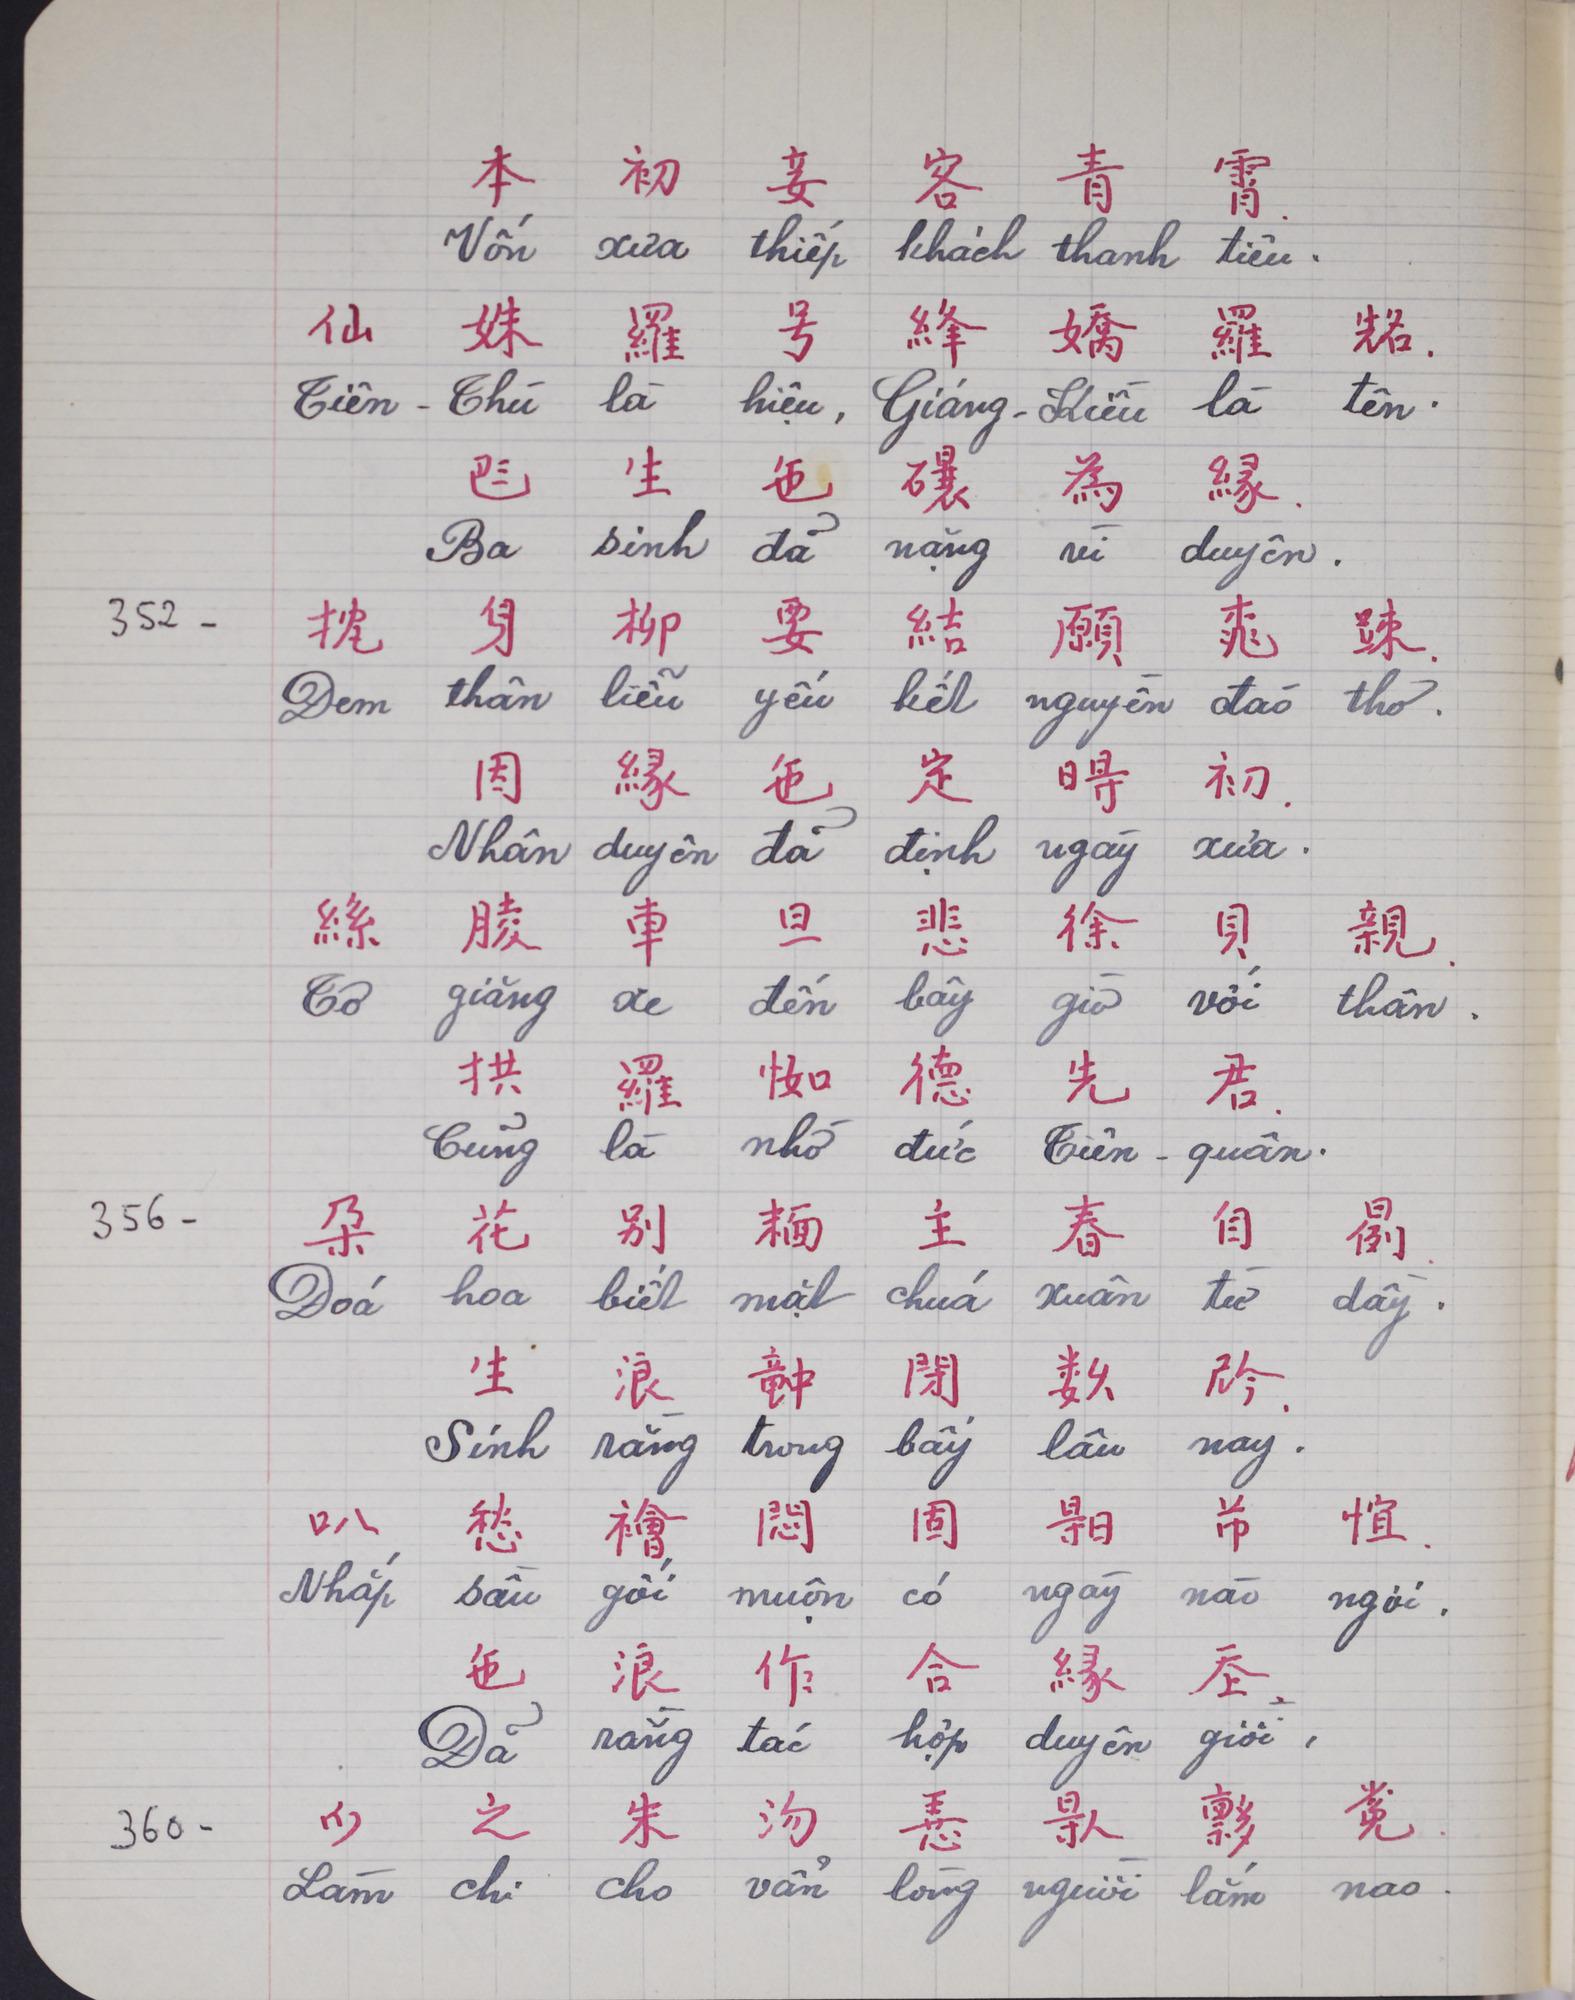 本 初 妾 客 青 霄.
Vốn xưa thiếp khách thanh tiêu.
仙 姝 羅 号 絳 嬌 羅 𠸜.
Tiên - Thù là hiệu, Giáng - Kiều là tên.
𠀧 生 㐌 𥗾 為 縁.
Ba sinh đả nặng vì duyên.
352 -
抌 身 柳 要 結 願 桃 踈.
Đem thân liễu yếu kết nguyền đào thơ.
因 縁 㐌 定 𣈜 初.
Nhân duyên đả định ngày xưa.
絲 𦝄 車 旦 悲 徐 貝 親.
Tơ giăng xe đến bây giờ với thân.
拱 羅 㤇 德 先 君.
Cũng là nhờ đức Tiên - quân.
356 -
朶 花 别 𩈘 主 春 自 𣋚.
Đoá hoa biết mặt chuá xuân từ dầy.
生 浪 𥪝 閉 数 𠉞.
Sinh rằng trong bấy lâu nay.
𠯦 愁 襘 悶 固 𣈜 芇 愃.
Nhắp sầu gối muộn có ngày nào ngơi.
㐌 浪 作 合 縁 𡗶.
Đã rằng tác hợp duyên giời,
360 -
之 朱 沕 𢚸 𠊛
Làm chi cho vẩn lòng người lắm nao.